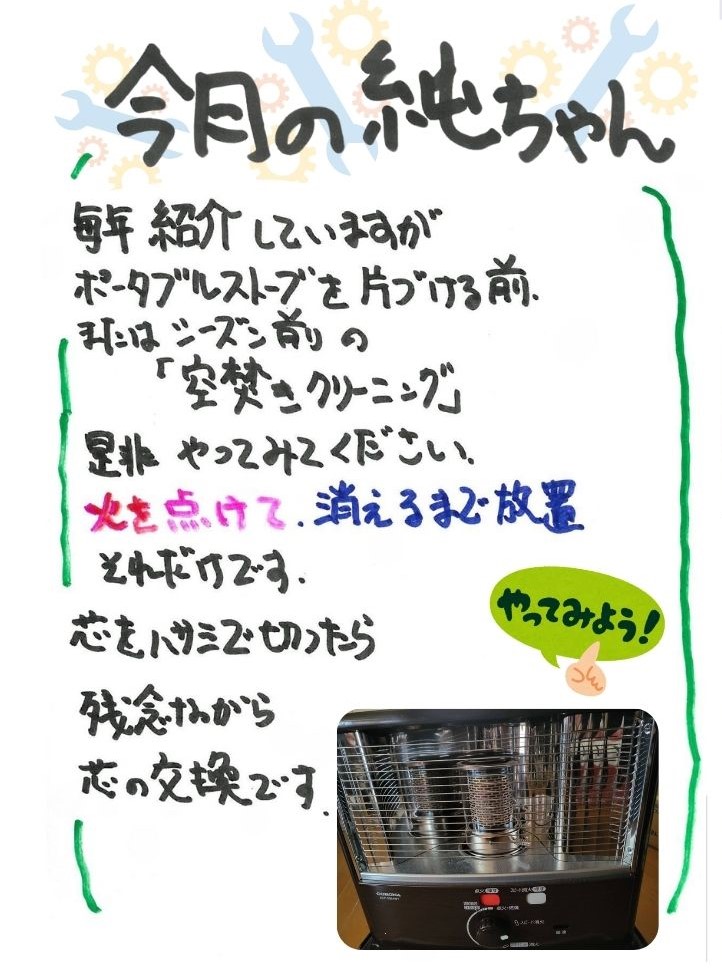 今月の純ちゃん
毎年 紹介していますが
ポータブルストーブを片づける前、
またはシーズン前の
「空焚きクリーニング」
是非 やってみてください。
火を点けて、消えるまで放置
それだけです。
やってみよう!
芯をハサミで切ったら
残念ながら
芯の交換です。
CORONA